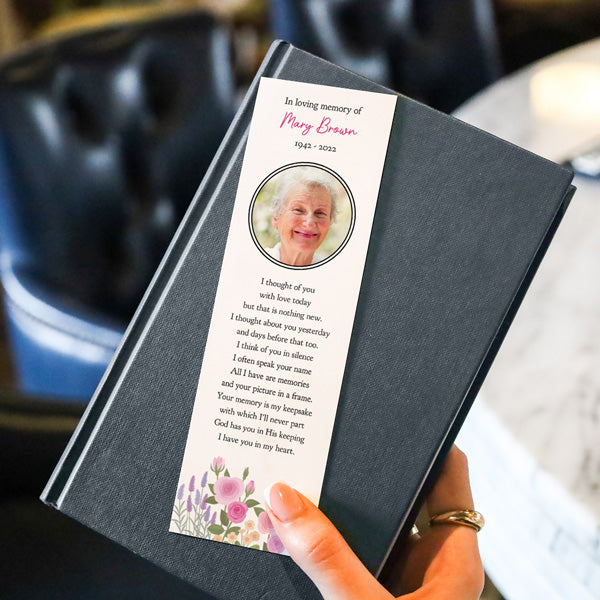 In loving memory of
Mary Brown
1942 - 2022
I thought of you
with love today
but that is nothing new.
I thought about you yesterday
and days before that too.
I think of you in silence
I often speak your name
All I have are memories
and your picture in a frame.
Your memory is my keepsake
with which I'll never part
God has you in His keeping
I have you in my heart.